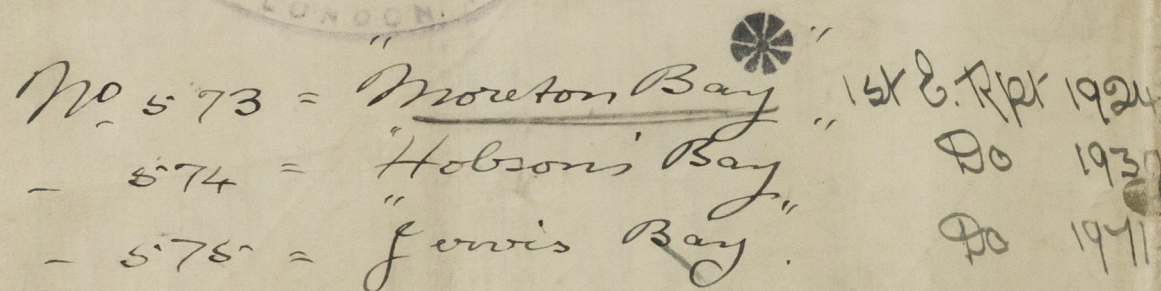 LONDON.
No 573 = "Moreton Bay" 1st E. Rpt 1924
– 574 = "Hobson's Bay" Do 193
– 575 = "Jervis Bay". Do 1971